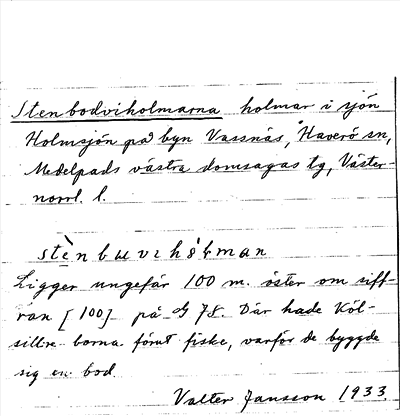 Stenbodviholmarna holmar i sjön
Holmsjön på byn Vassnäs, Haverö sn,
Medelpads västra domsagas tg, Väster-
norrl. l.
stènbuvihólman
Ligger ungefär 100 m. öster om siff-
ran [100] på G 78. Där hade Köl-
sillre-borna förut fiske, varför de byggde
sig en bod.
Valter Jansson 1933.